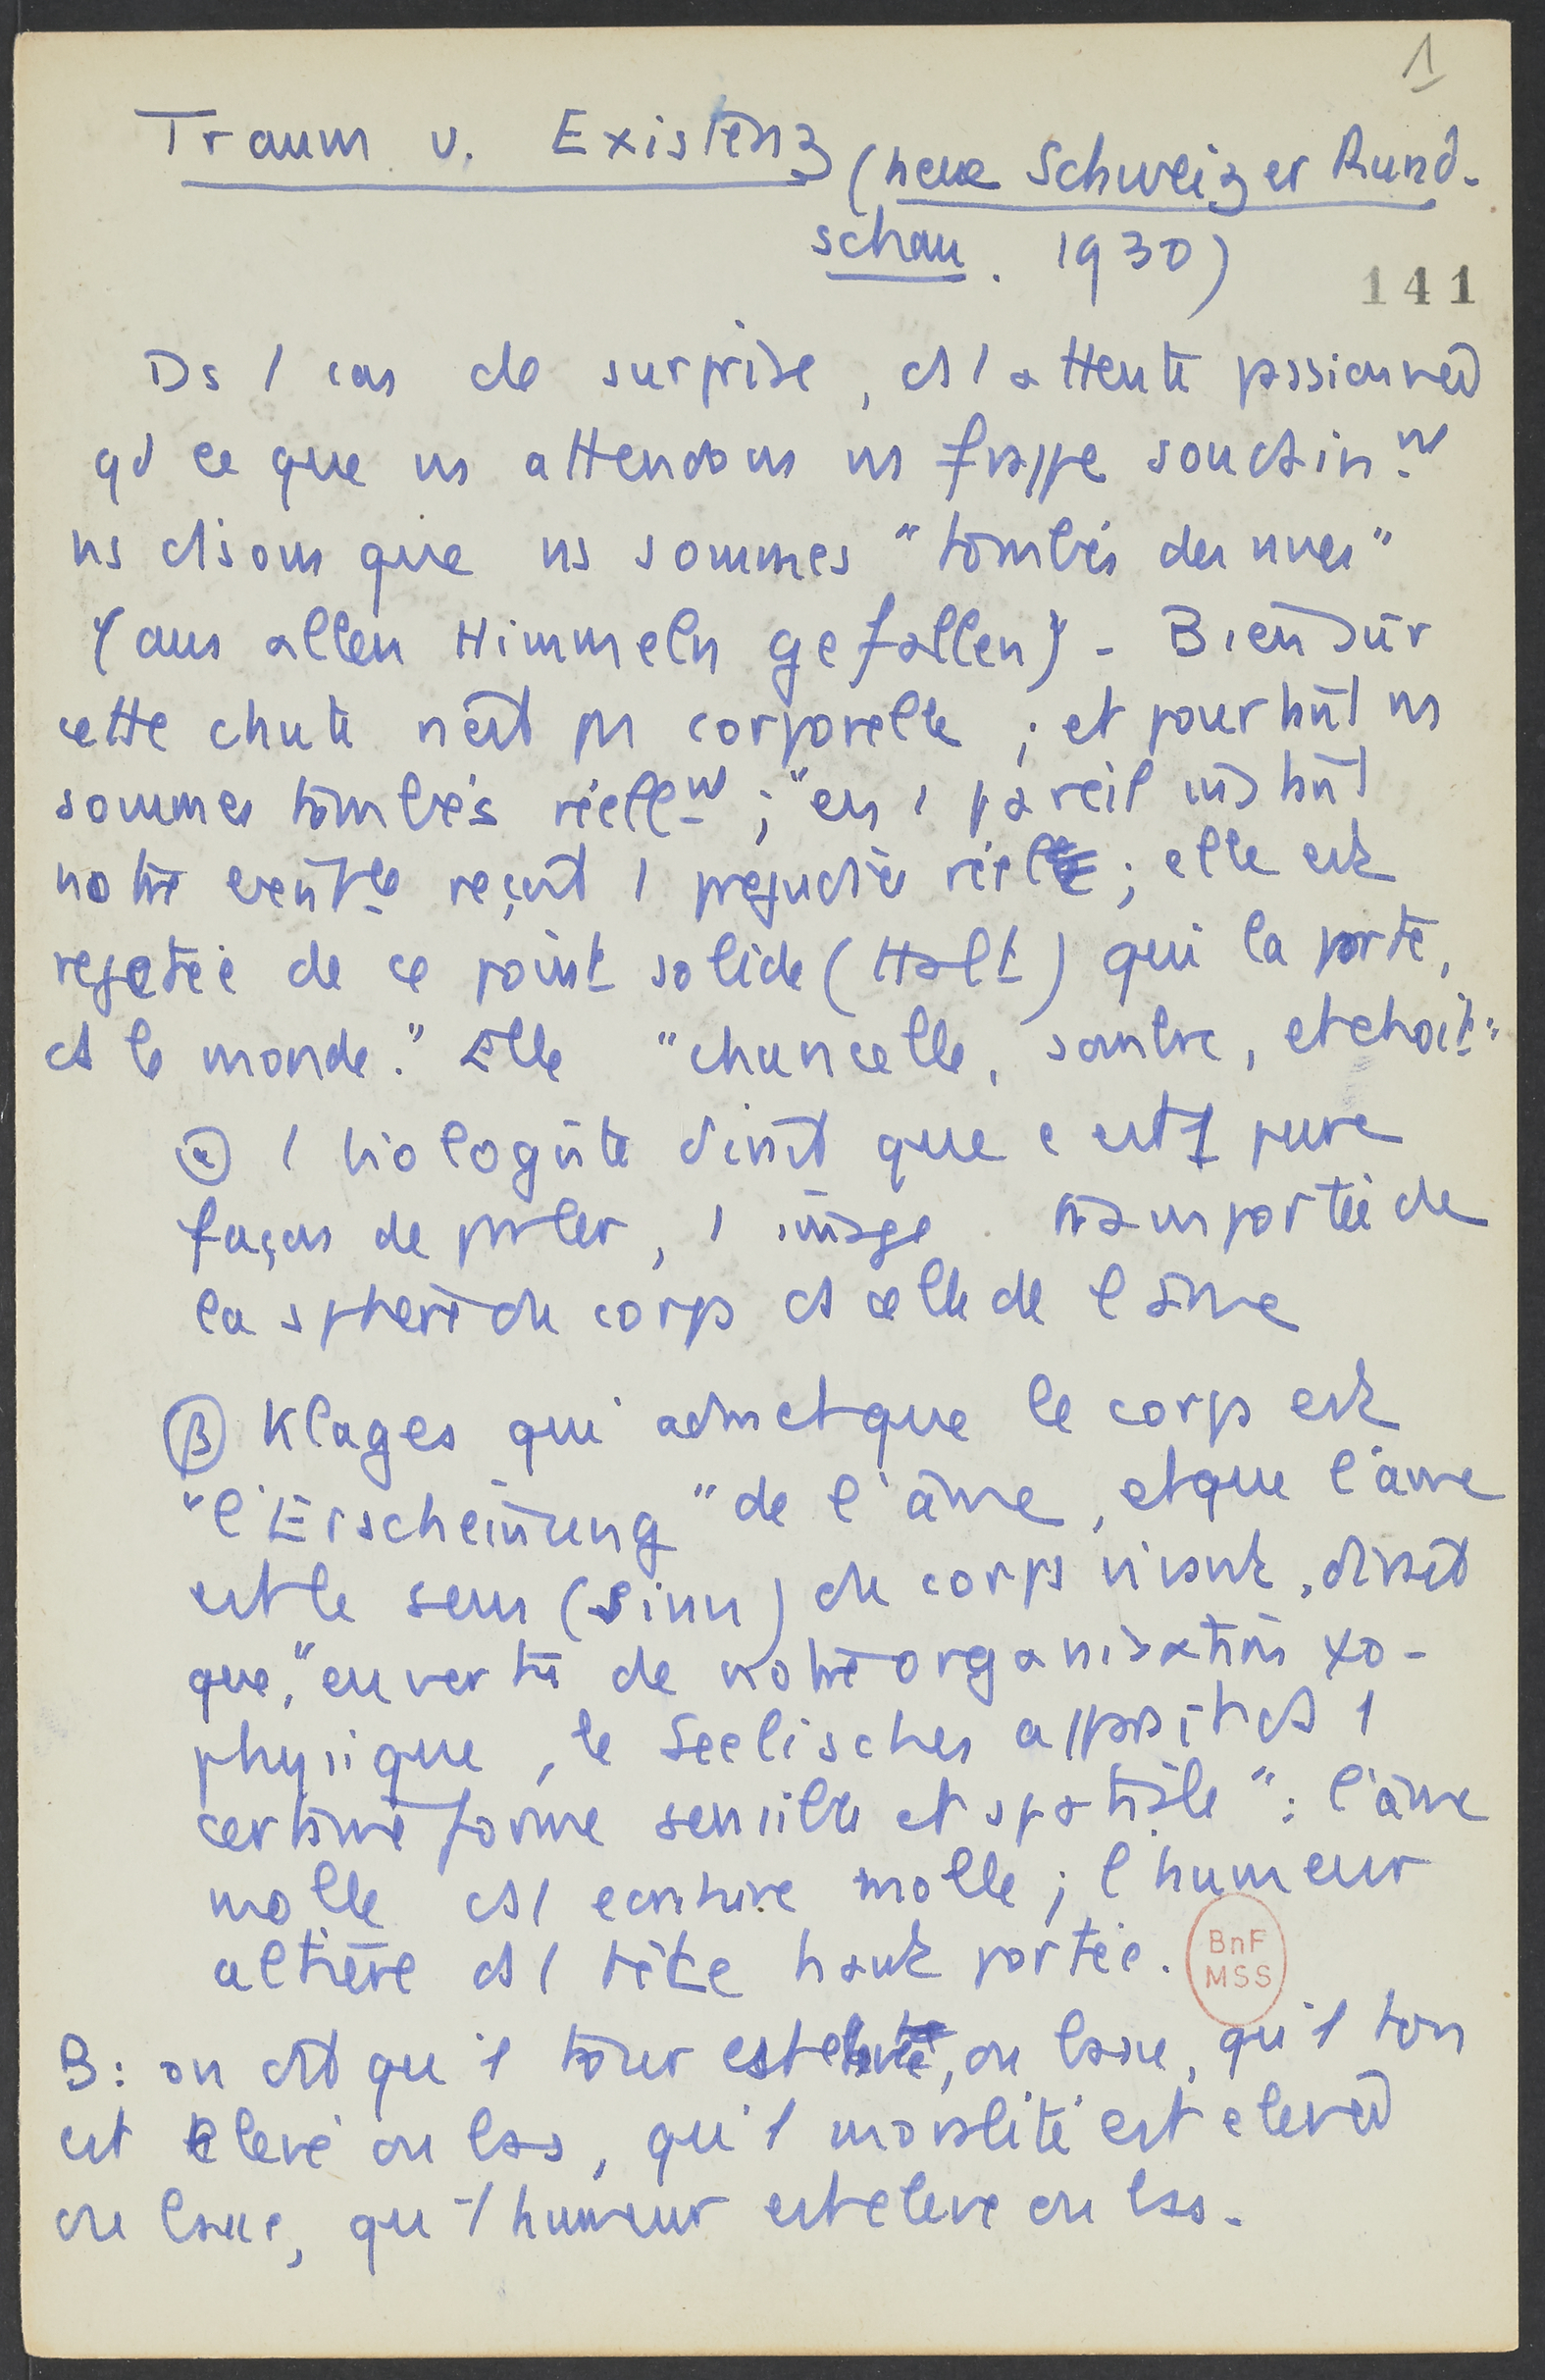 1
Traum u. Existenz (neue Schweizer Rund-
schau. 1930)
141
Ds 1 cas de surprise, ds 1 attente passionnée
qd ce que ns attendons ns frappe soudainnt
ns disons que ns sommes "tombés des nues"
(aus allen Himmeln gefallen) - Bien sûr
cette chute n'est pas corporelle ; et pourtant ns
sommes tombés réellnt ; "en 1 pareil instant
notre reçoit 1 préjudice réel ; elle est
rejetée de ce point solide (Halt) qui la porte,
ds le monde." Elle "chancelle, sombre, et choit"
α 1 biologiste dirait que c'est 1 pure
façon de parler, 1 image transportée de
la sphère du corps ds celle de l'âme
β Klages qui admet que le corps est
"l'Erscheinung" de l'âme, et que l'âme
est le sens (Sinn) du corps vivant, dirait
que, "en vertu de notre organisation ψo-
physique, le Seelisches apparait ds 1
certaine forme sensible et spatiale" : l'âme
molle ds 1 écriture molle ; l'humeur
altière ds 1 tête haut portée.
BnF
MSS
B : on dit qu'1 tour est élevée, ou basse, qu'1 ton
est élevé ou bas, qu'1 moralité est élevée
ou basse, qu'1 humeur est élevé ou bas.